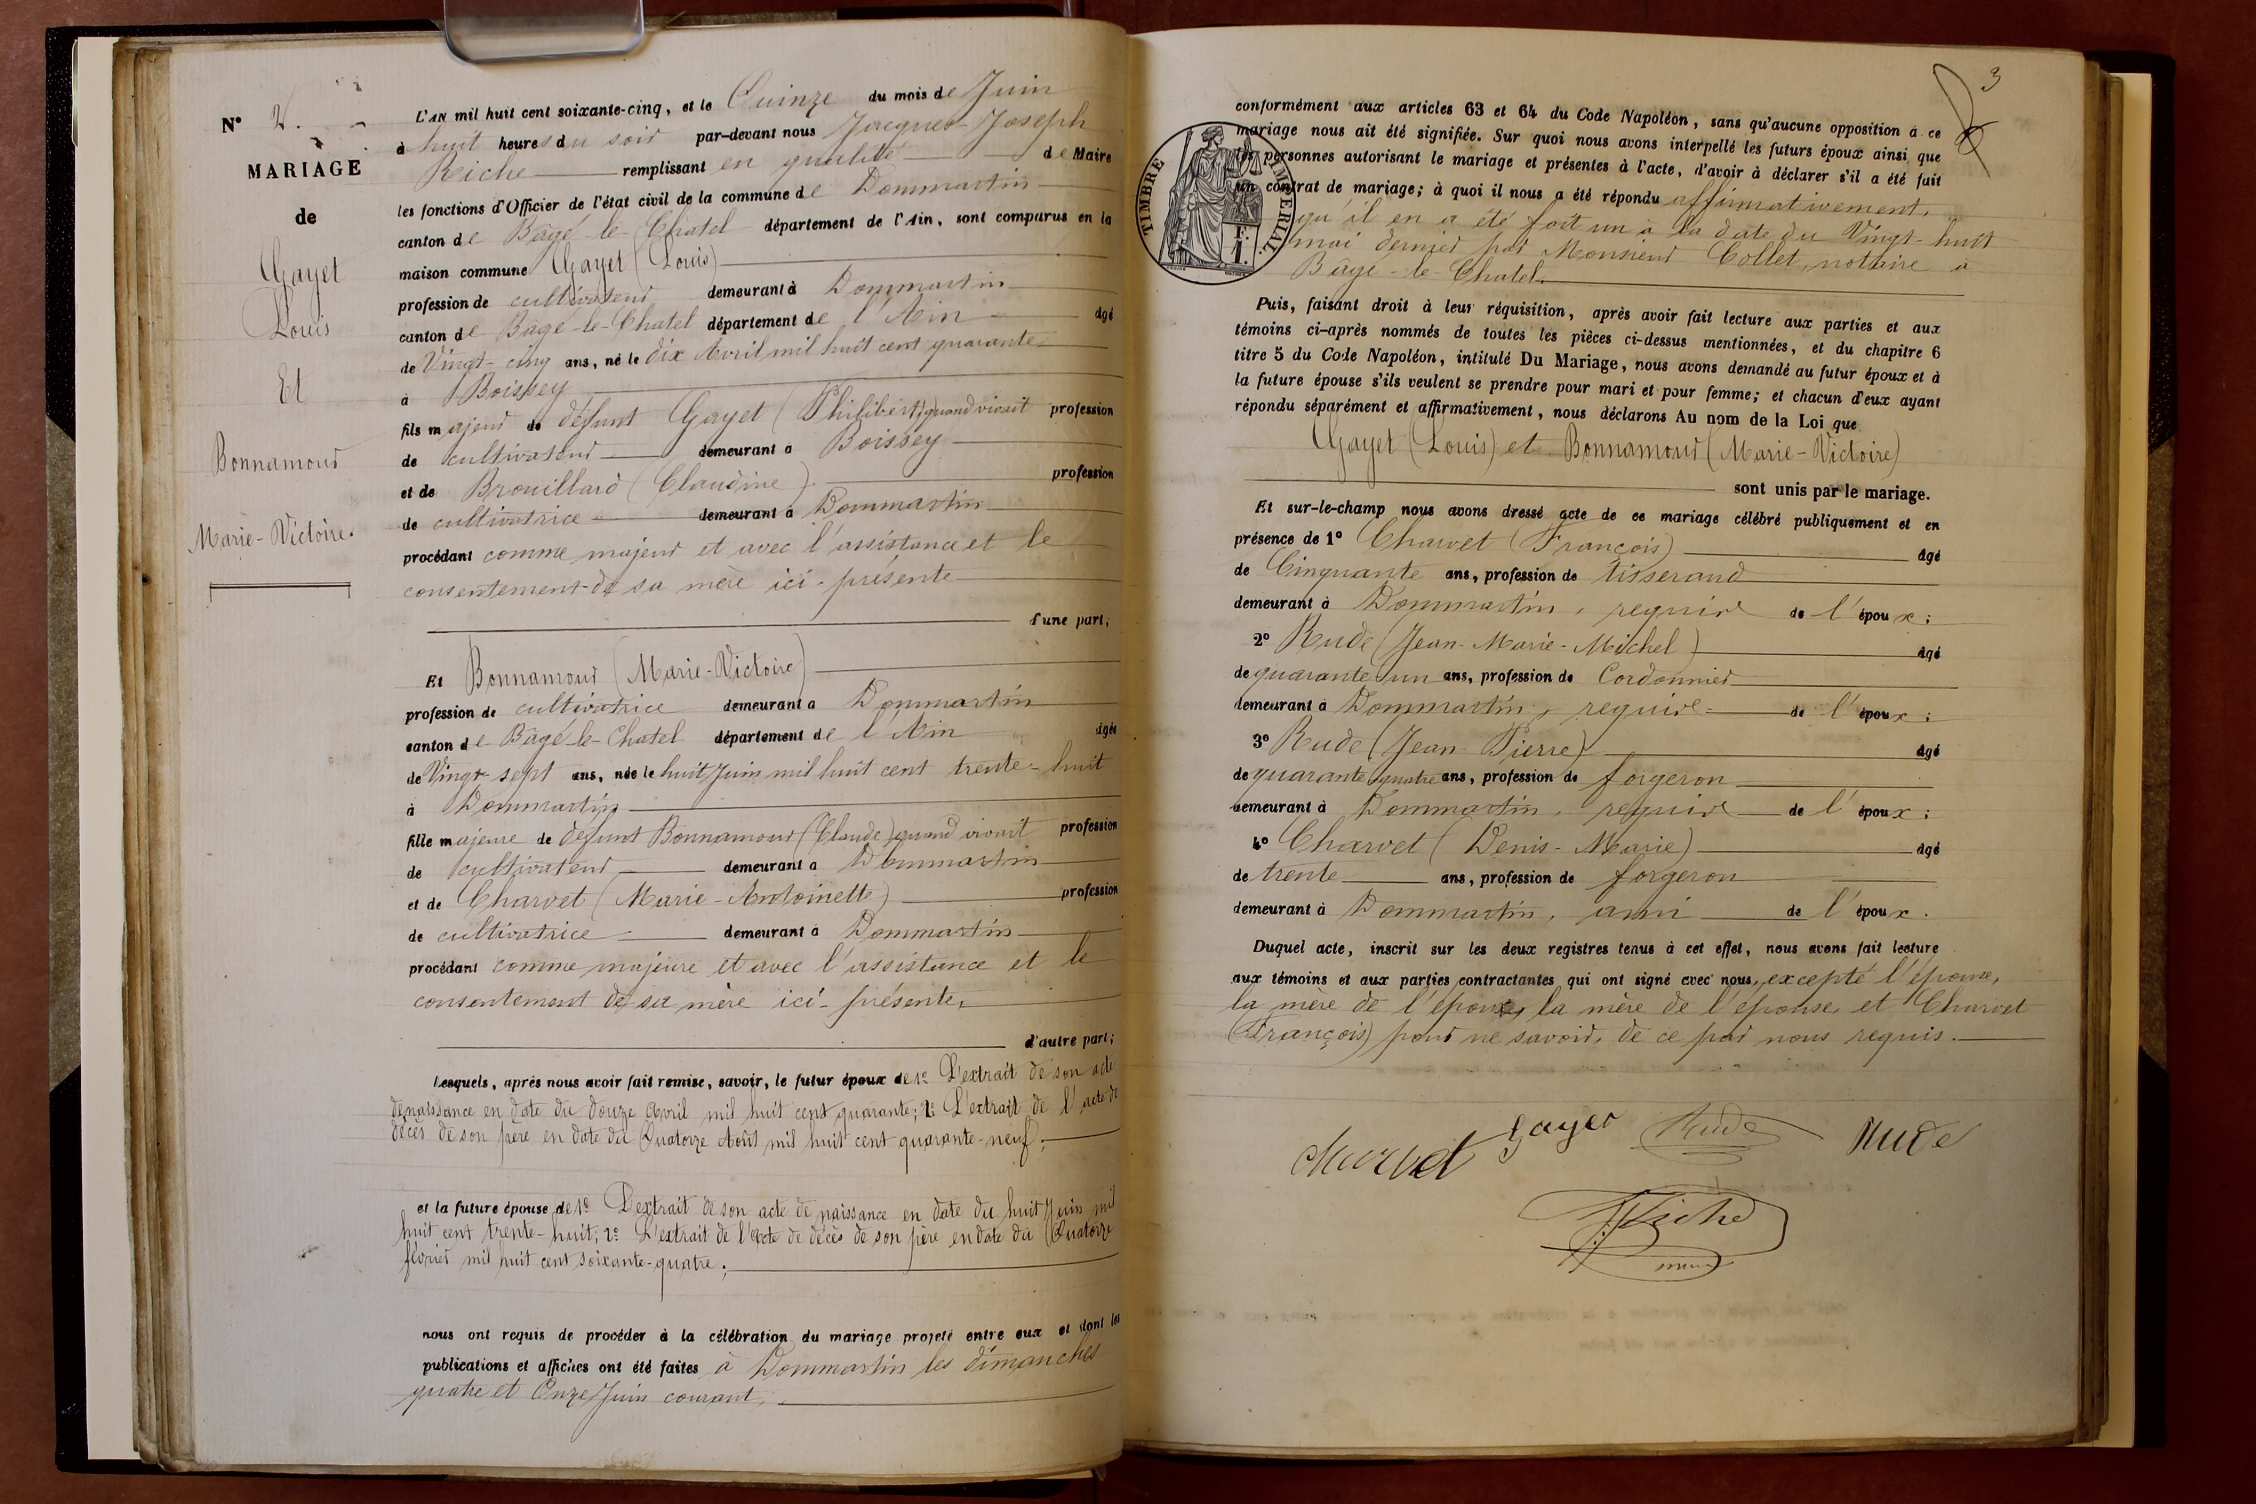 N° 2.
MARIAGE
de
Gayet
Louis
Et
Bonnamour
Marie-Victoire.
L'AN mil huit cent soixante-cinq, et le Quinze du mois de Juin
à huit heures du soir par-devant nous Jacques-Joseph
Riche remplissant en qualité de Maire
les fonctions d'Officier de l'état civil de la commune de Dommartin
canton de Bâgé-le-Chatel département de l'Ain, sont comparus en la
maison commune Gayet (Louis)
profession de cultivateur demeurant à Dommartin
canton de Bâgé-le-Chatel département de l'Ain âgé
de Vingt-cinq ans, né le dix Avril mil huit cent quarante
à Boissey
fils majeur de défunt Gayet (Philibert) quand vivait profession
de cultivateur demeurant à Boissey
et de Brouillard (Claudine) profession
de cultivatrice demeurant à Dommartin
procédant comme majeur et avec l'assistance et le
consentement de sa mère ici-présente
d'une part;
Et Bonnamour (Marie-Victoire)
profession de cultivatrice demeurant à Dommartin
canton de Bâgé-le-Chatel département de l'Ain âgée
de Vingt-sept ans, née le huit Juin mil huit cent trente-huit
à Dommartin
fille majeure de défunt Bonnamour (Claude) quand vivait profession
de cultivateur demeurant à Dommartin
et de Charvet (Marie-Antoinette) profession
de cultivatrice demeurant à Dommartin
procédant comme majeure et avec l'assistance et le
consentement de sa mère ici-présente,
d'autre part;
Lesquels, après nous avoir fait remise, savoir, le futur époux de 1° L'extrait de son acte
de naissance en date du douze Avril mil huit cent quarante; 2° L'extrait de l'acte de
décès de son père en date du Quatorze Août mil huit cent quarante-neuf;
et la future épouse de 1° L'extrait de son acte de naissance en date du huit Juin mil
huit cent trente-huit; 2° L'extrait de l'acte de décès de son père en date du Quatorze
février mil huit cent soixante-quatre;
nous ont requis de procéder à la célébration du mariage projeté entre eux et dont les
publications et affiches ont été faites à Dommartin les dimanches
quatre et Onze Juin courant,
3
conformément aux articles 63 et 64 du Code Napoléon, sans qu'aucune opposition à ce
mariage nous ait été signifiée. Sur quoi nous avons interpellé les futurs époux ainsi que
les personnes autorisant le mariage et présentes à l'acte, d'avoir à déclarer s'il a été fait
un contrat de mariage; à quoi il nous a été répondu affirmativement,
qu'il en a été fait un à la date du Vingt-huit
mai dernier par Monsieur Collet, notaire à
Bâgé-le-Chatel.
TIMBRE IMPERIAL.
F.
1.
Puis, faisant droit à leur réquisition, après avoir fait lecture aux parties et aux
témoins ci-après nommés de toutes les pièces ci-dessus mentionnées, et du chapitre 6
titre 5 du Code Napoléon, intitulé Du Mariage, nous avons demandé au futur époux et à
la future épouse s'ils veulent se prendre pour mari et pour femme; et chacun d'eux ayant
répondu séparément et affirmativement, nous déclarons Au nom de la Loi que
Gayet (Louis) et Bonnamour (Marie-Victoire)
sont unis par le mariage.
Et sur-le-champ nous avons dressé acte de ce mariage célébré publiquement et en
présence de 1° Charvet (François) âgé
de Cinquante ans, profession de tisserand
demeurant à Dommartin, requise de l'époux;
2° Rude (Jean-Marie-Michel) âgé
de quarante-un ans, profession de Cordonnier
demeurant à Dommartin, requise de l'époux;
3° Rude (Jean Pierre) âgé
de quarante quatre ans, profession de forgeron
demeurant à Dommartin, requise de l'époux;
4° Charvet (Denis-Marie) âgé
de trente ans, profession de forgeron
demeurant à Dommartin, ami de l'époux.
Duquel acte, inscrit sur les deux registres tenus à cet effet, nous avons fait lecture
aux témoins et aux parties contractantes qui ont signé avec nous, excepté l'épouse,
la mère de l'époux, la mère de l'épouse, et Charvet
(François) pour ne savoir, de ce par nous requis.
Charvet Gayet Rude Rude
J. J. Riche
maire